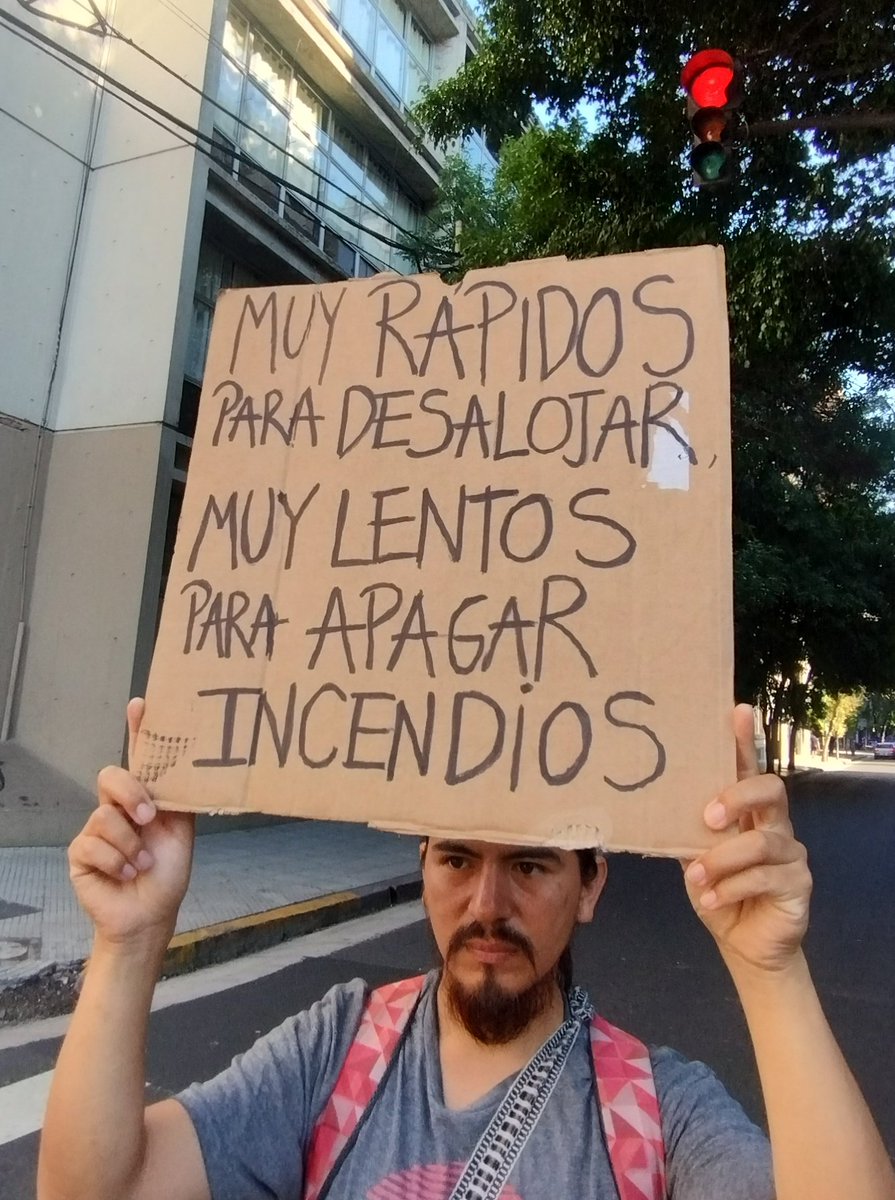 MUY RÁPIDOS
PARA DESALOJAR,
MUY LENTOS
PARA APAGAR
INCENDIOS